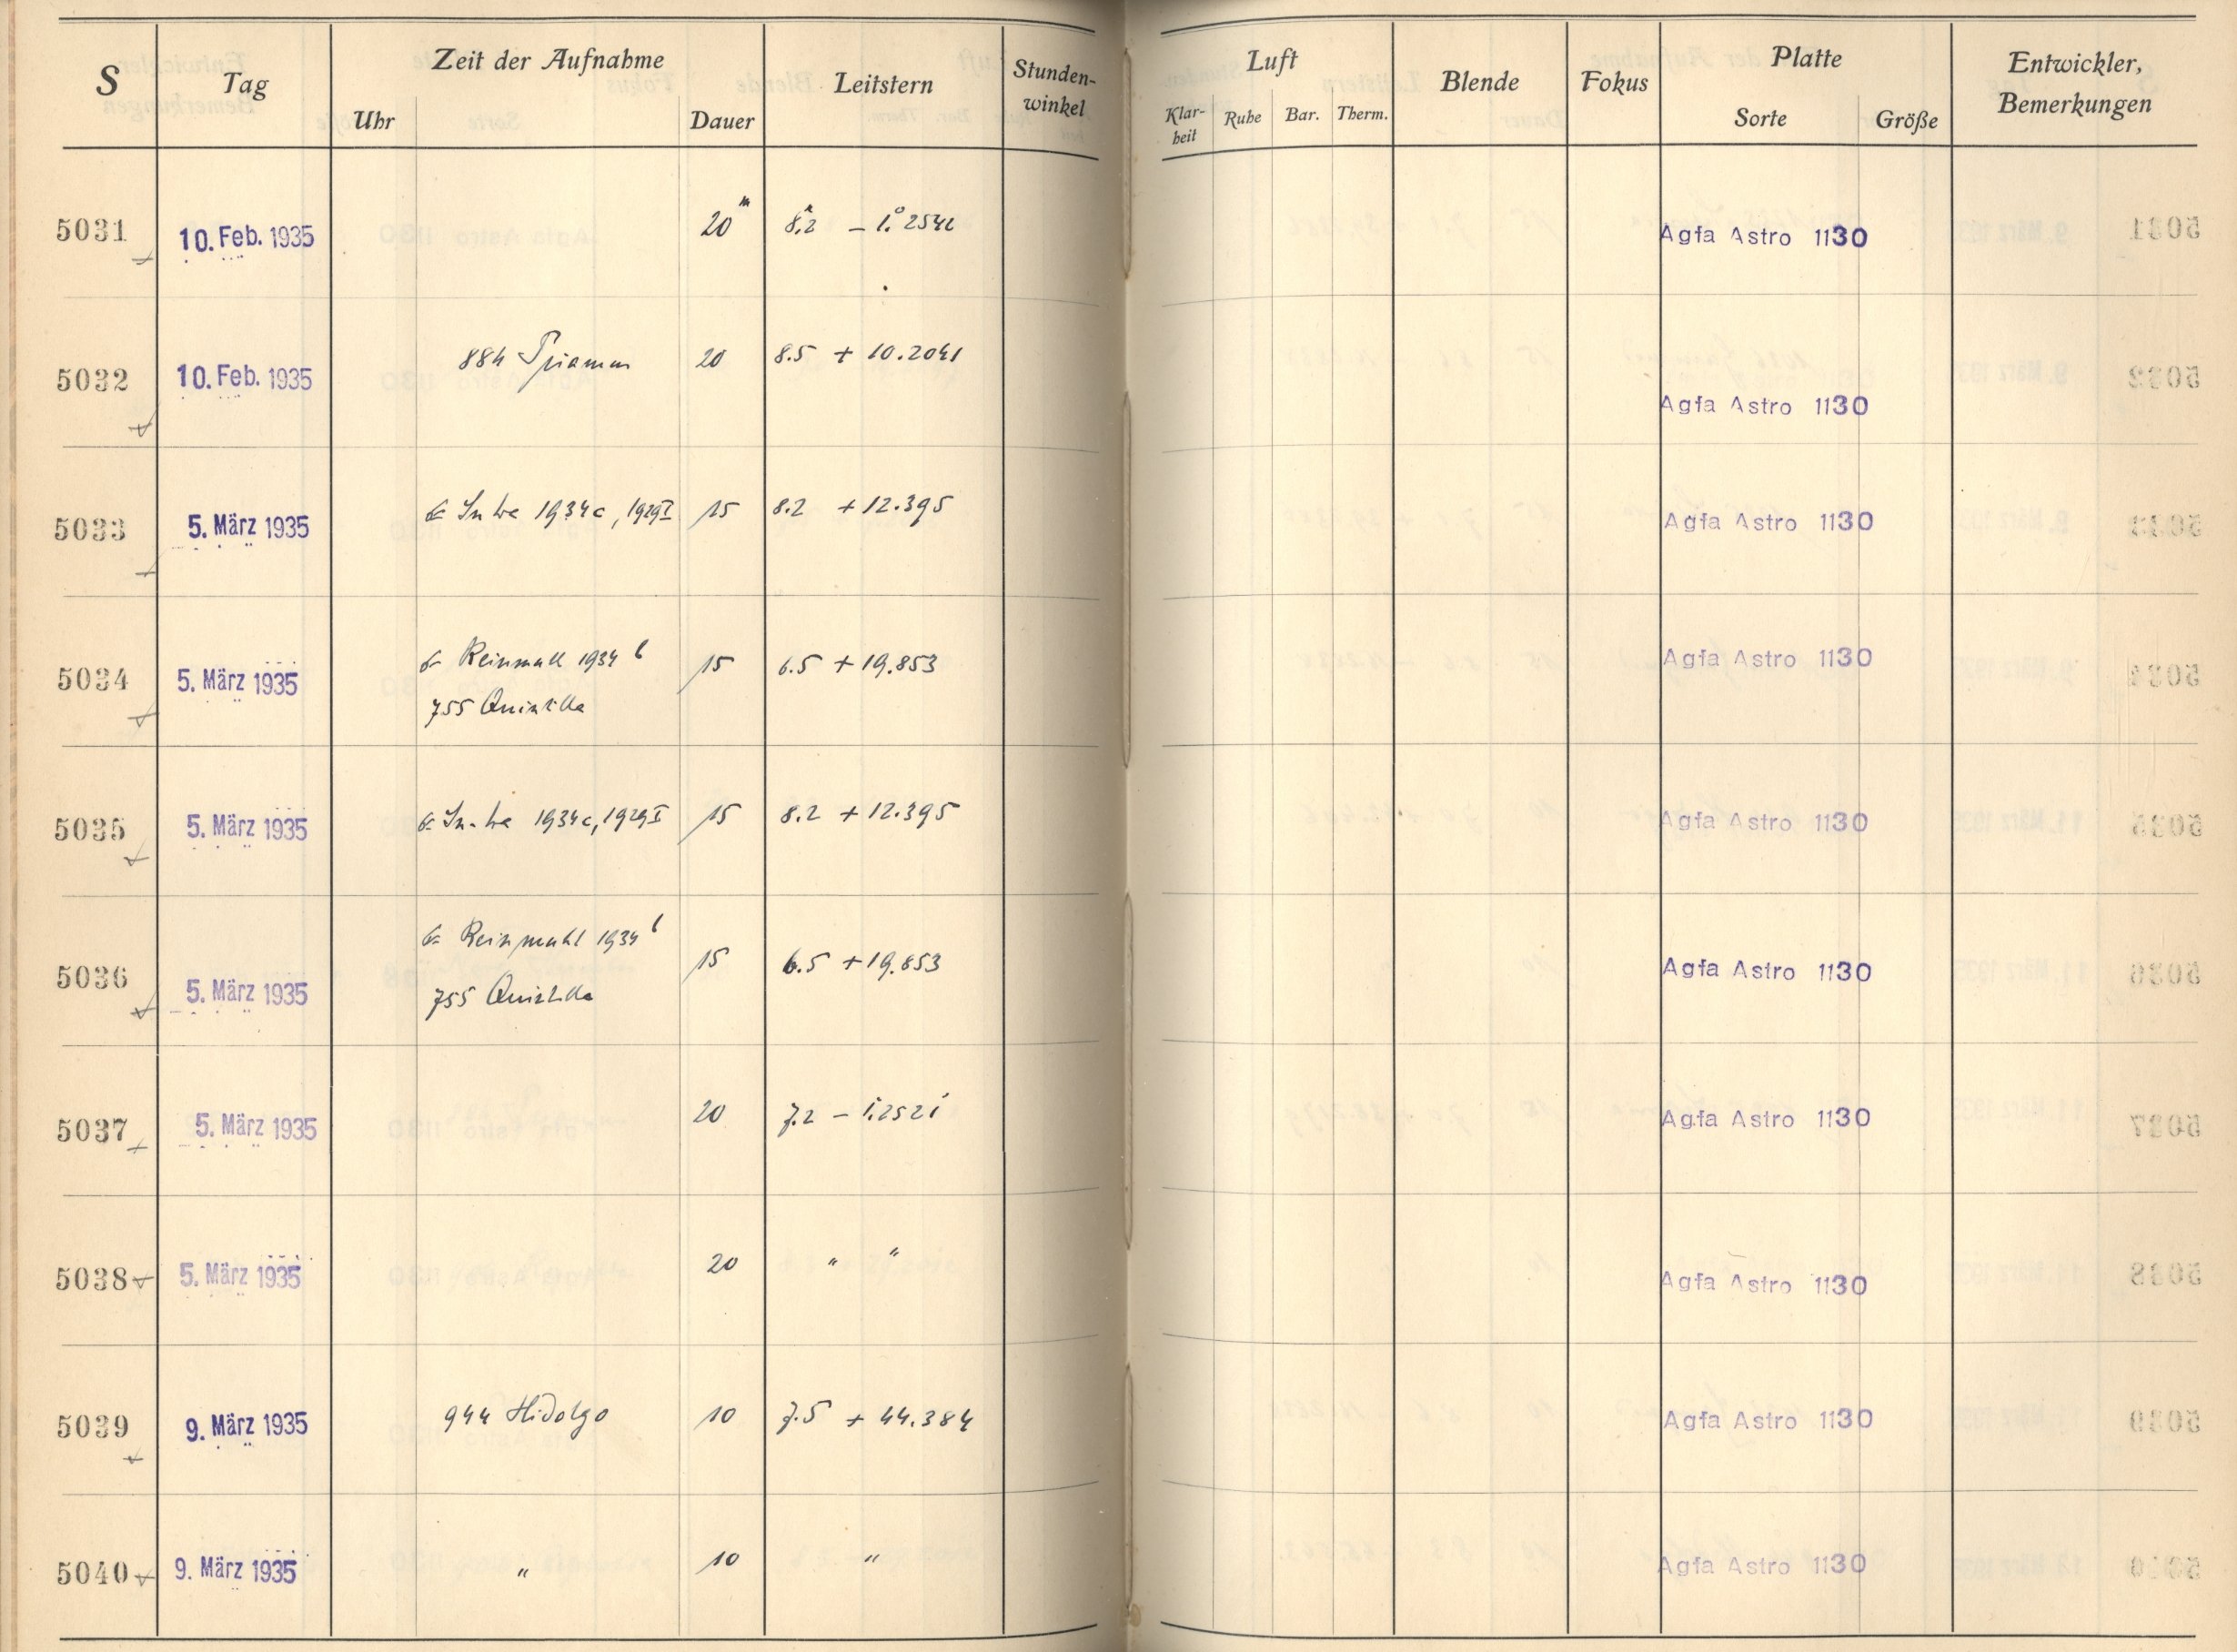 S Tag Zeit der Aufnahme Leitstern Stunden-winkel Luft Blende Fokus Platte Entwickler, Bemerkungen
Uhr Dauer Klar-heit Ruhe Bar. Therm. Sorte Größe
5031 10. Feb. 1935 20m 8.2 – 1.°2542 Agfa Astro 1130
5032 10. Feb. 1935 884 Priamus 20 8.5 + 10.2041 Agfa Astro 1130
5033 5. März 1935 1934c, 1929I 15 8.2 + 12.395 Agfa Astro 1130
5034 5. März 1935 Reinmuth 1934 15 6.5 + 19.853 Agfa Astro 1130
755 Quintilla
5035 5. März 1935 1934c, 1929I 15 8.2 + 12.395 Agfa Astro 1130
5036 5. März 1935 Reinmuth 1934 15 6.5 + 19.853 Agfa Astro 1130
755 Quintilla
5037 5. März 1935 20 7.2 – 1.2521 Agfa Astro 1130
5038 5. März 1935 20 " " Agfa Astro 1130
5039 9. März 1935 944 Hidalgo 10 7.5 + 44.384 Agfa Astro 1130
5040 9. März 1935 " 10 " Agfa Astro 1130